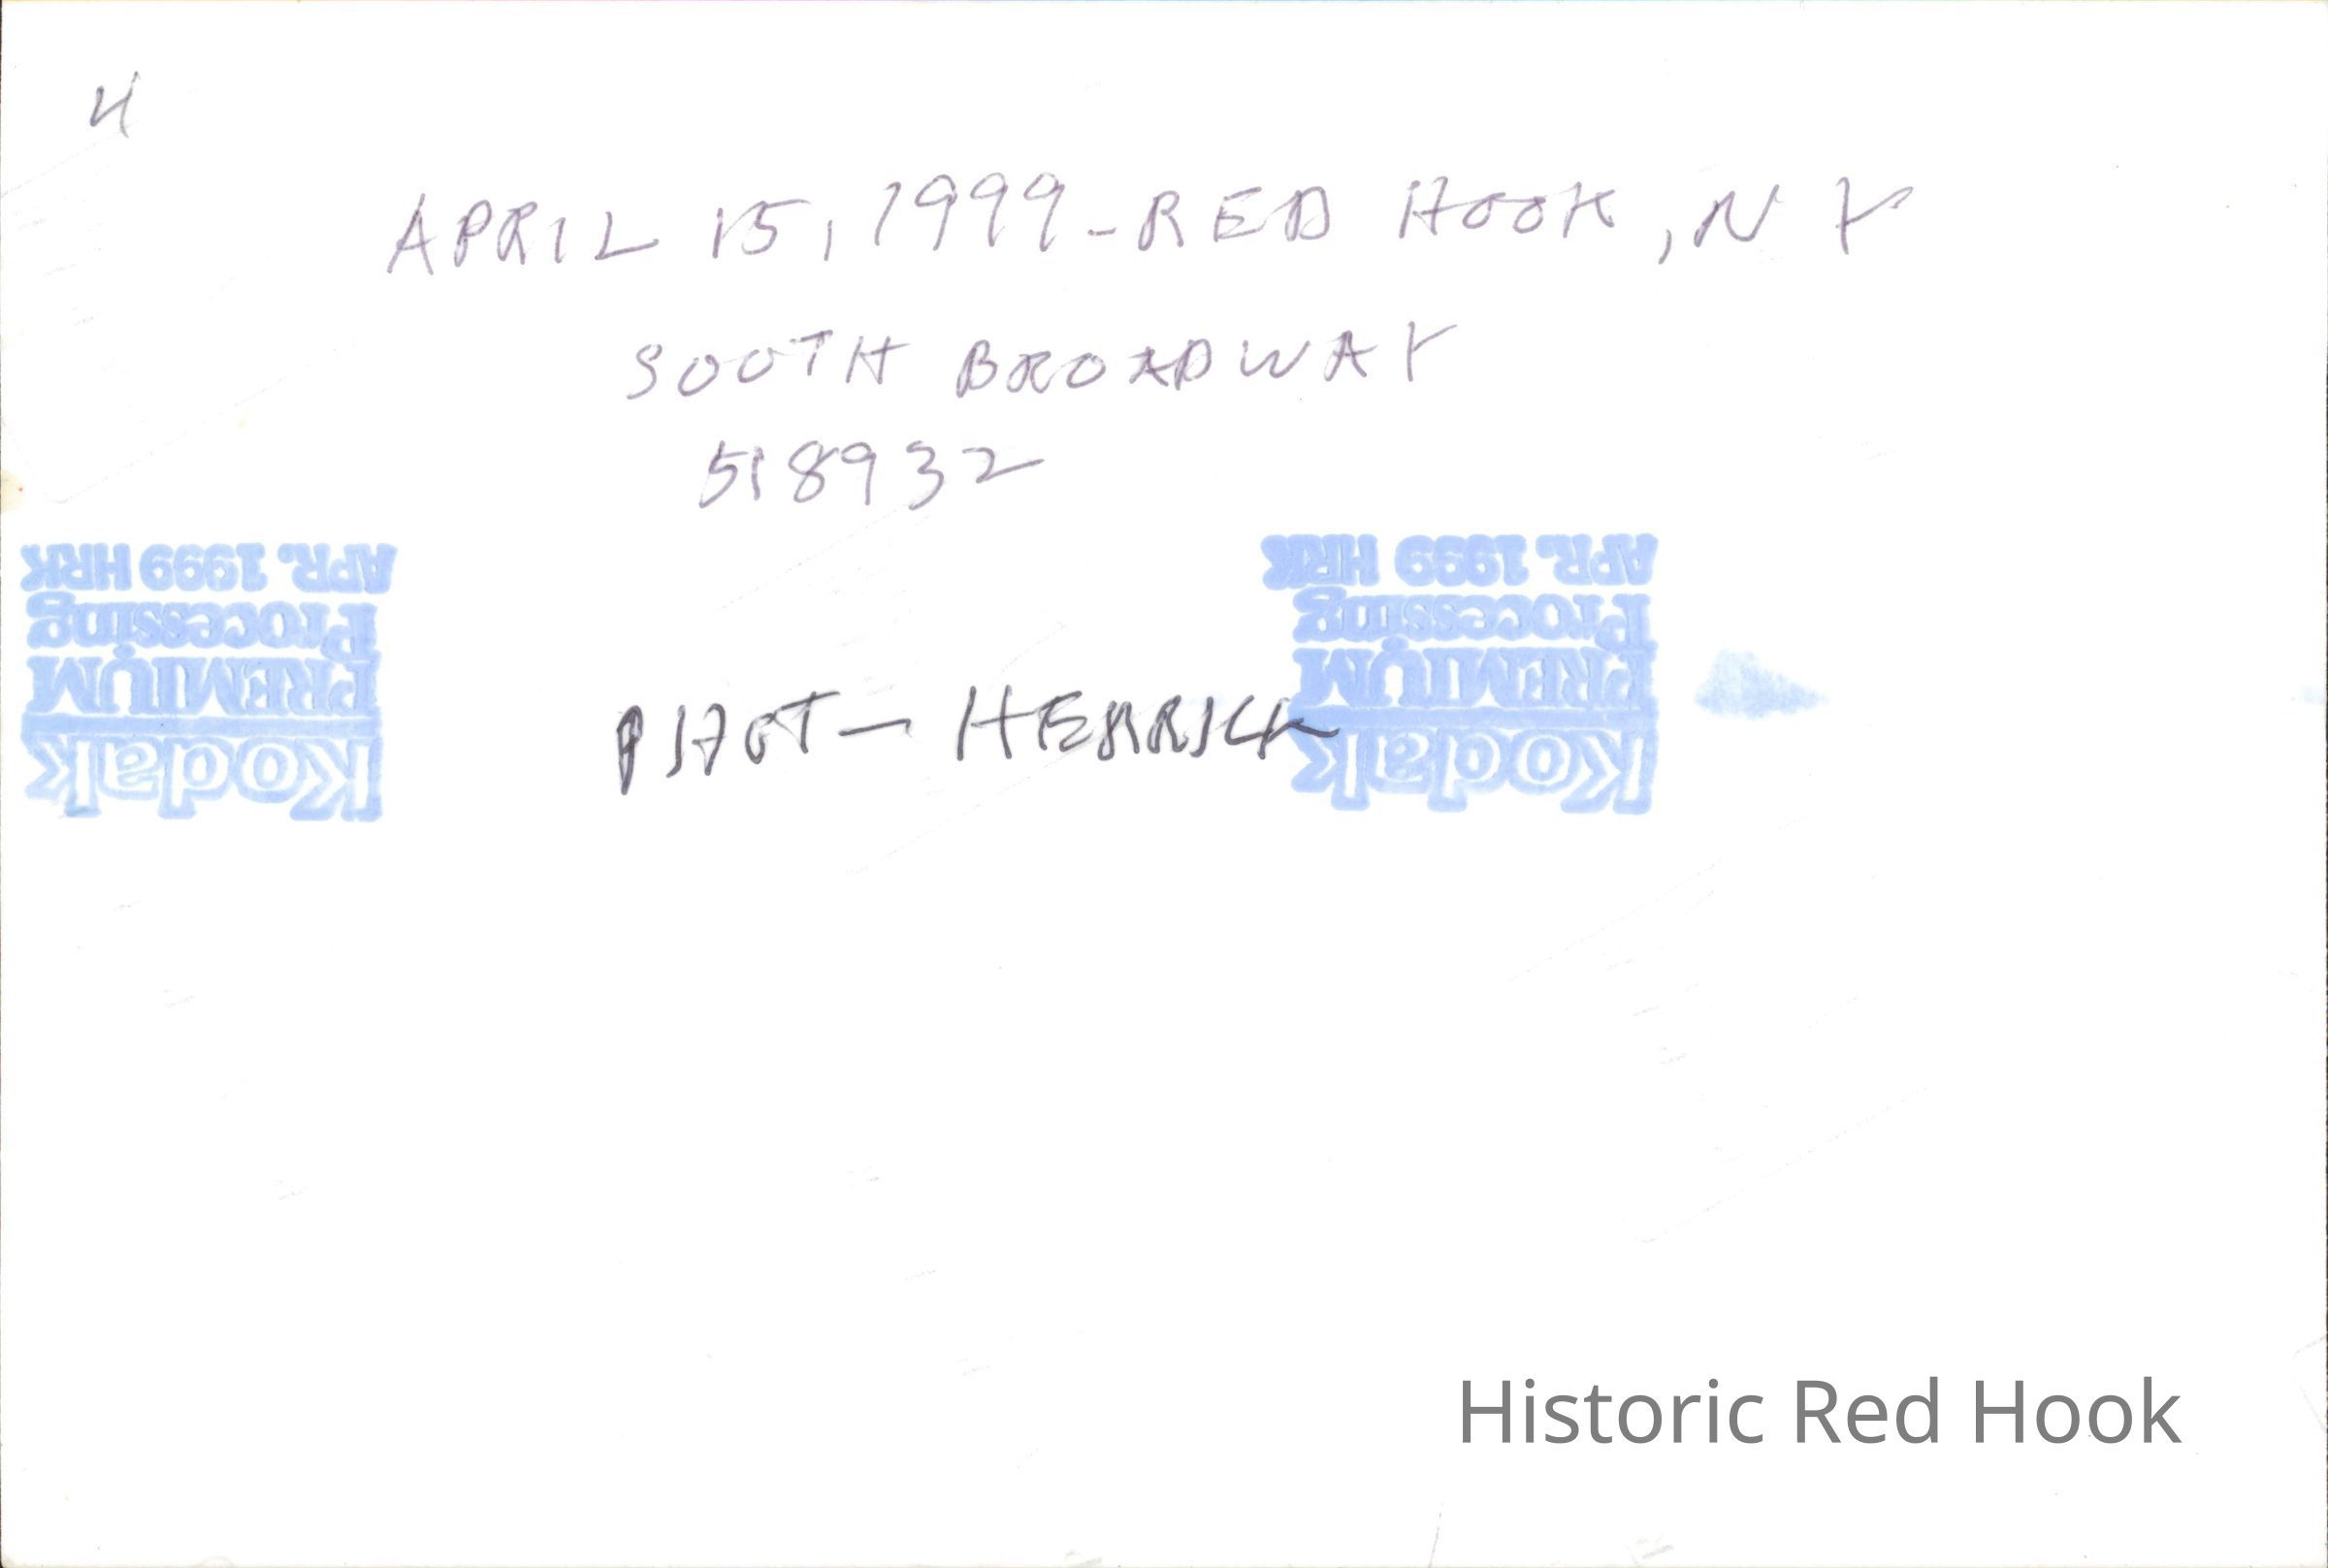 4
APRIL 15, 1999 - RED HOOK, NY
SOUTH BROADWAY
518932
APR. 1999 HRK
Processing
PREMIUM
Kodak
APR. 1999 HRK
Processing
PREMIUM
Kodak
PHOT - HERRICK
Historic Red Hook